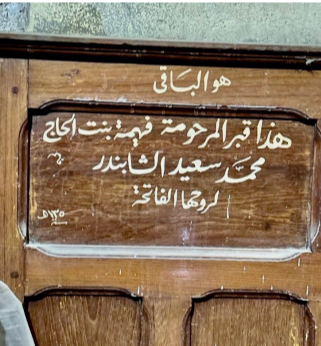 هو الباقي
هذا قبر المرحومة فهيمة بنت الحاج
محمد سعيد الشابندر
لروحها الفاتحة